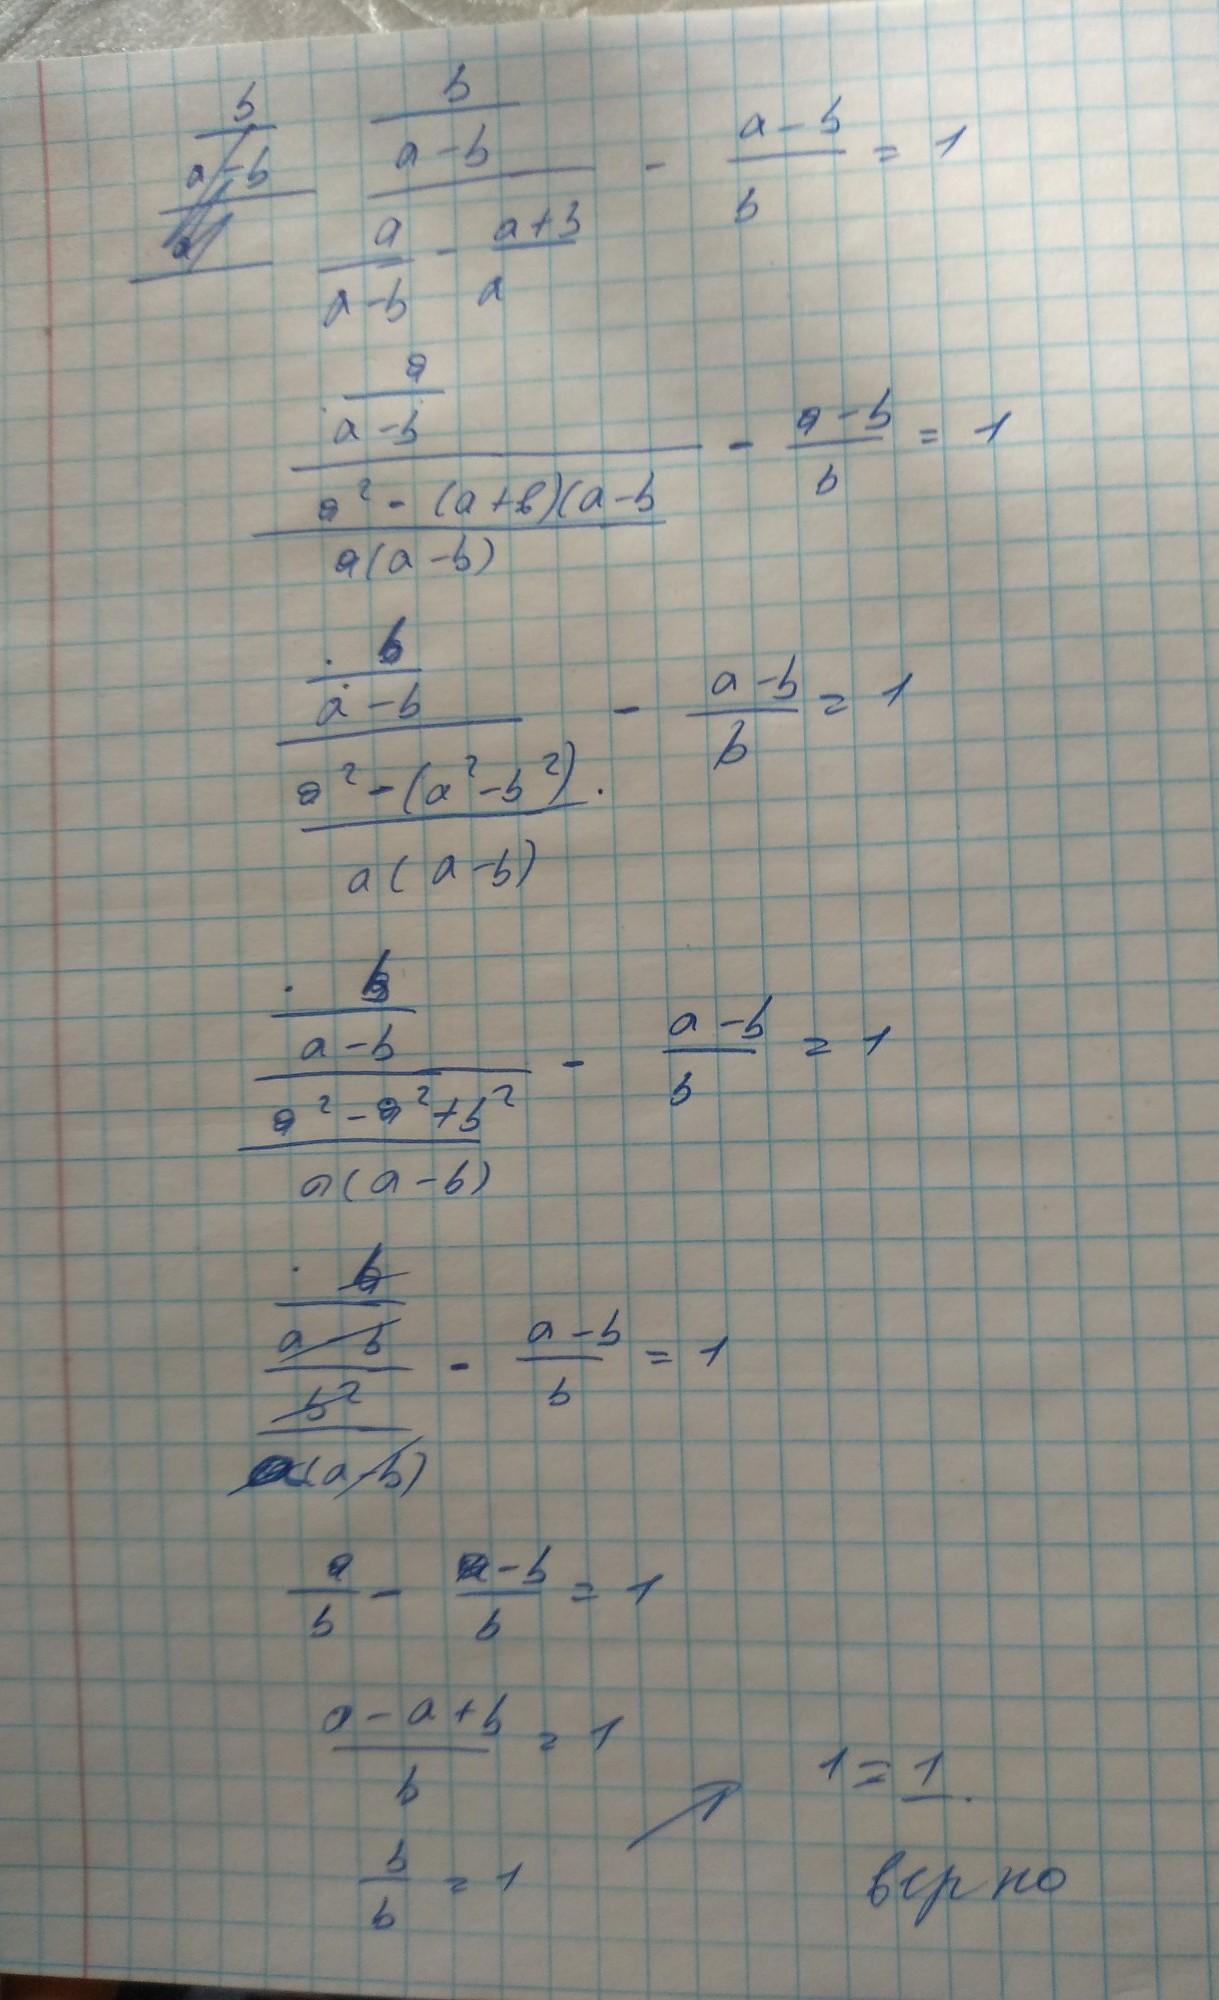 b
a-b
a
b
a-b
a
a-b
-
a+b
a
-
a-b
b
= 1
a
a-b
a² - (a+b)(a-b
a(a-b)
-
a-b
b
= 1
b
a-b
a² - (a² - b²).
a(a-b)
-
a-b
b
= 1
b
a-b
a² - a² + b²
a(a-b)
-
a-b
b
= 1
b
a-b
b²
a(a-b)
-
a-b
b
= 1
a
b
-
a-b
b
= 1
a-a+b
b
= 1
b
b
= 1
→
1 = 1.
верно